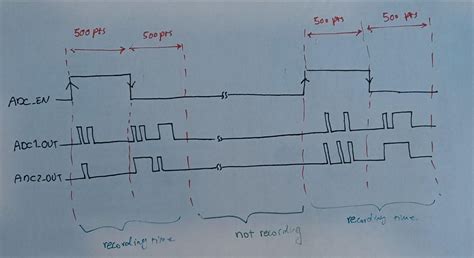 500 pts 500 pts 500 pts 500 pts
ADC_EN
ADC1_OUT
ADC2_OUT
recording time not recording recording time